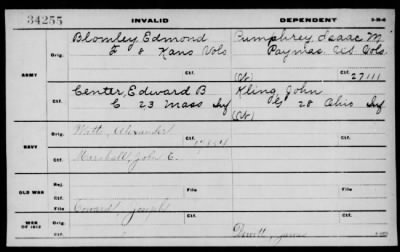 34255 INVALID DEPENDENT
Blomley, Edmond Pumphrey, Isaac M.
Orig. F 8 Kans Vols Paymas. U.S. Vols.
Ctf. (W) Ctf. 27111
ARMY
Center, Edward B Kling, John
Orig. C 23 Mass Inf G 28 Ohio Inf
Ctf. (W)
Orig. Watts, Alexander
Ctf.
NAVY
Marshall, John E.
Ctf.
Rej.
OLD WAR Ctf. File File
Orig. Coward, Joseph
WAR OF 1812
Ctf. Ctf. Dewitt, James